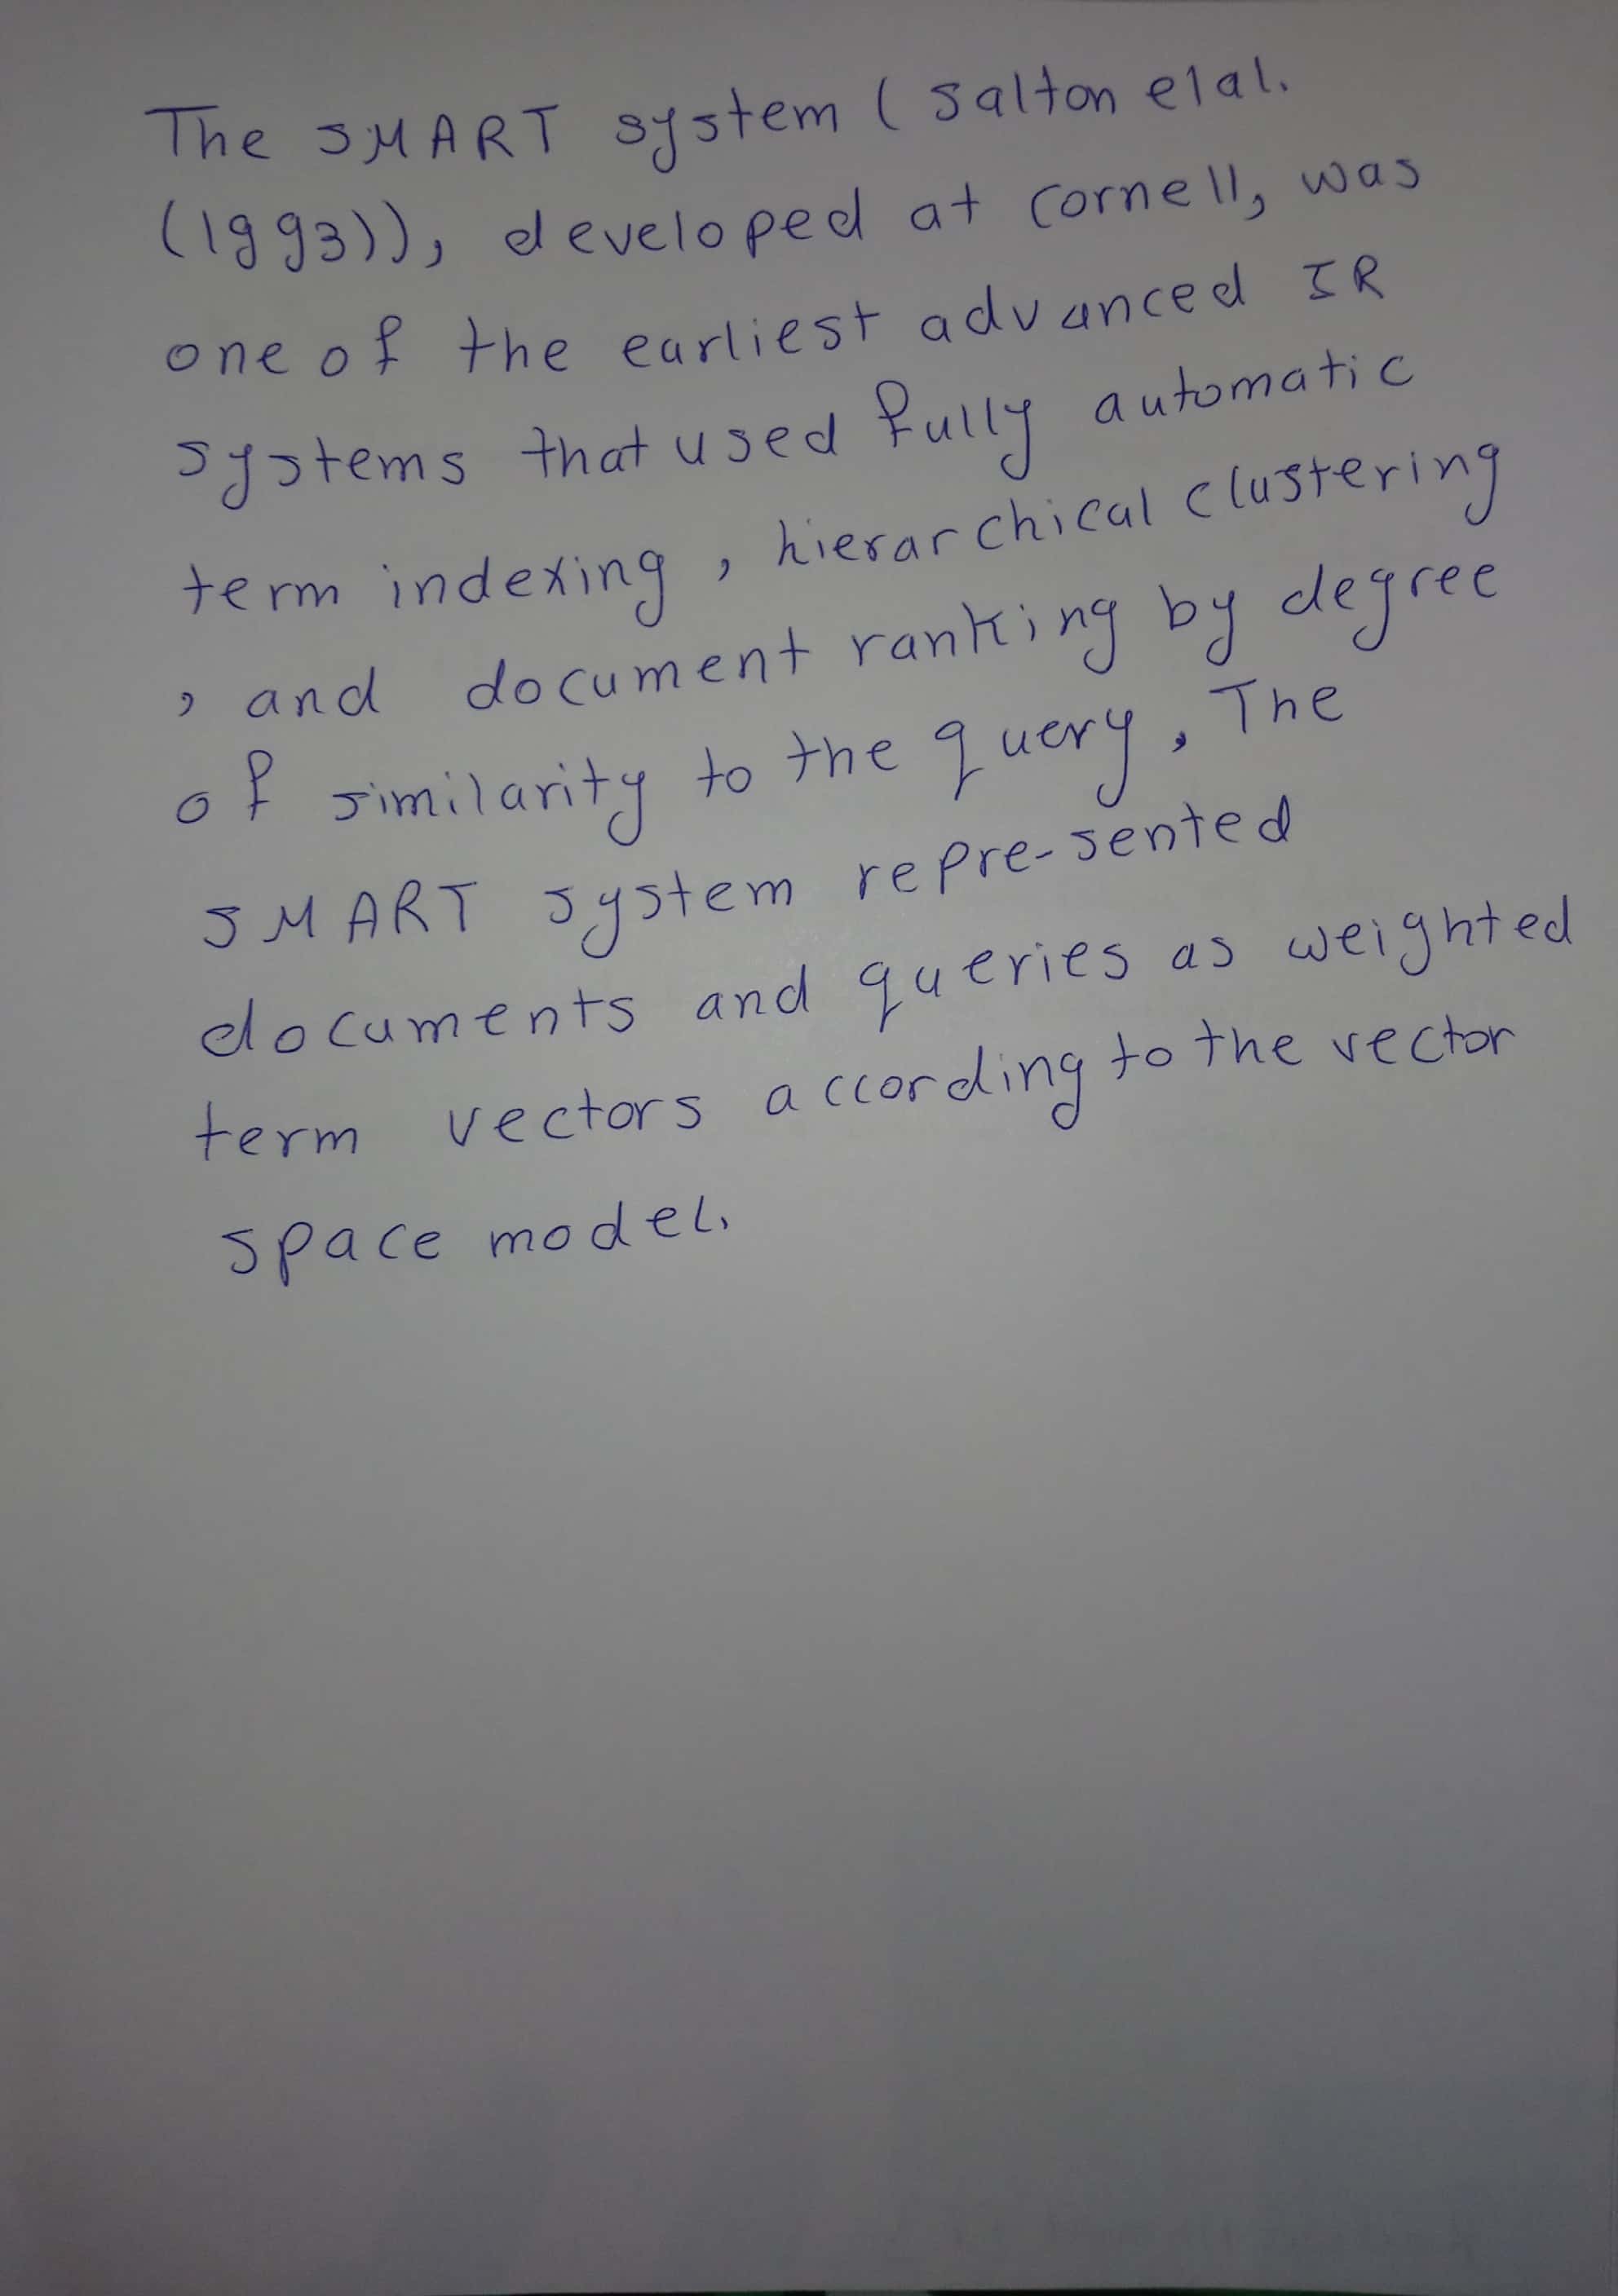 The SMART system (Salton elal.
(1993)), developed at cornell, was
one of the earliest advanced IR
systems that used fully automatic
term indexing, hierarchical clustering
, and document ranking by degree
of similarity to the query, The
SMART system repre-sented
documents and queries as weighted
term vectors according to the vector
space model.